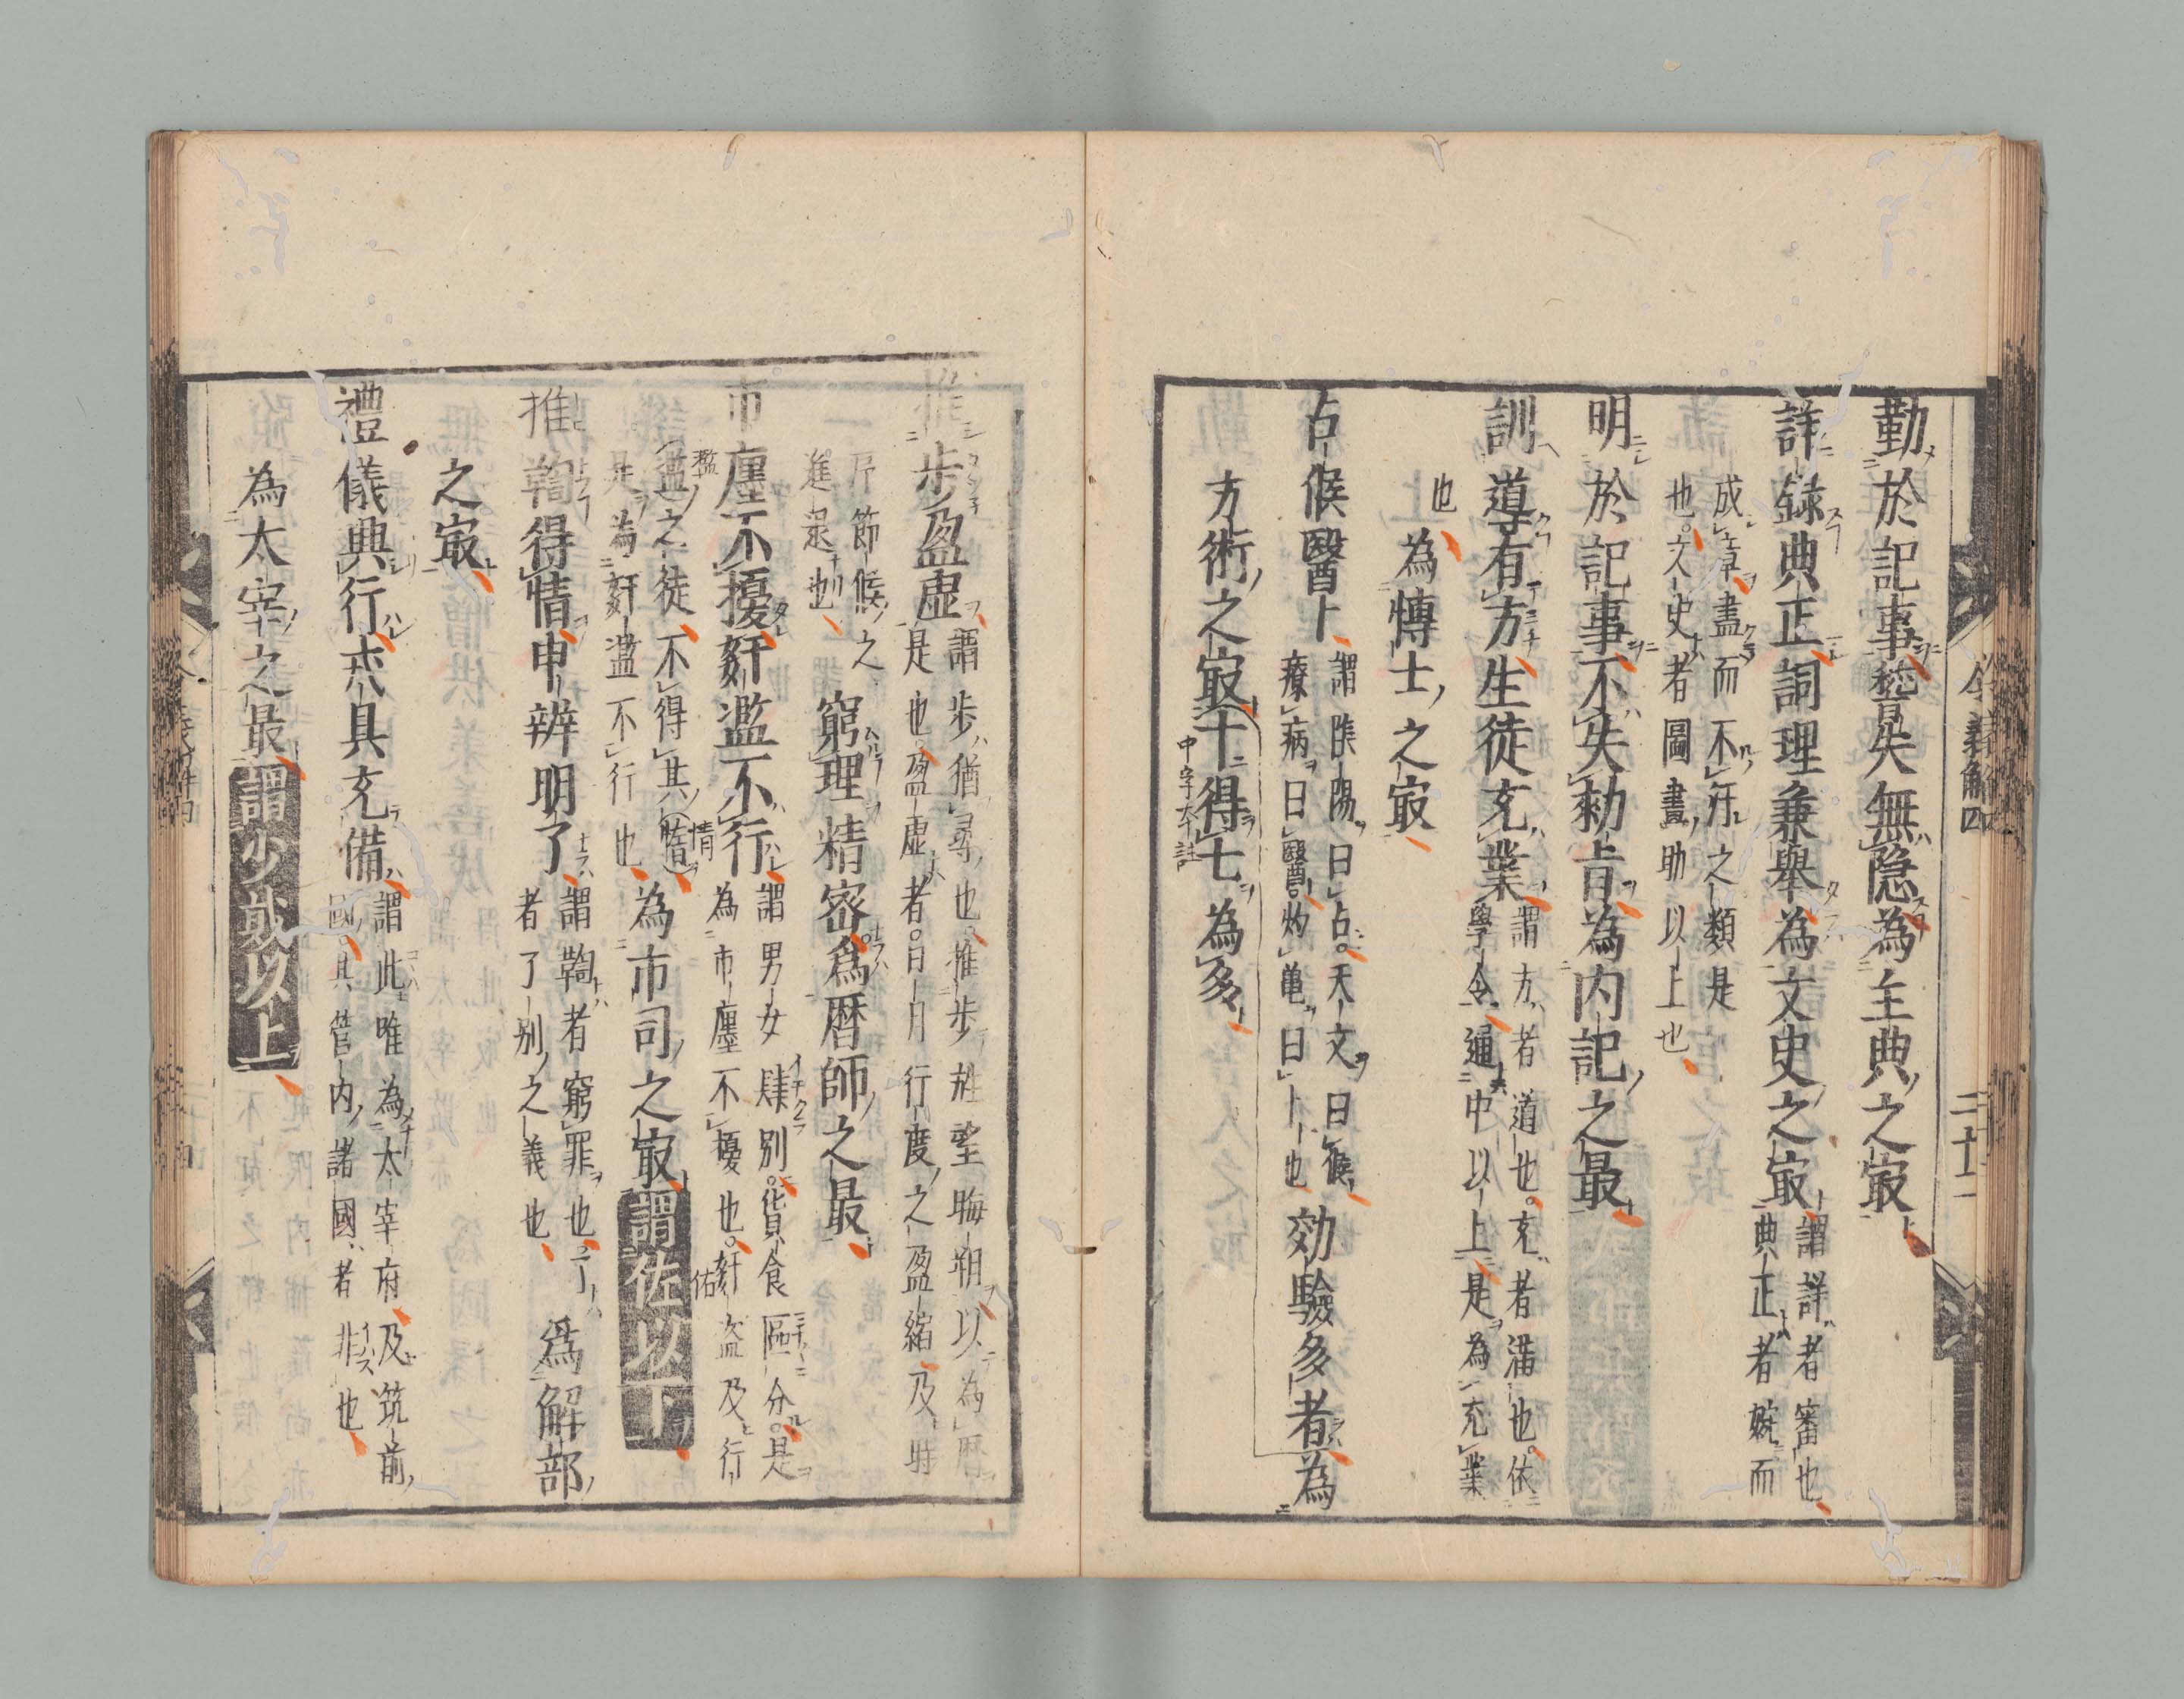 令義解四
二十二
勤於記事稽失無隠為主典之㝡
詳録典正詞理兼舉為文史之㝡謂詳者審也
典正者婉而
成章盡而不汙之類是
也文史者圖書助以上也
明於記事不失勅旨為内記之最
訓導有方生徒充業謂方者道也充者満也依
學令通中以上是為充業
也為博士之㝡
占候醫卜謂陰陽曰占天文曰候
療病曰醫灼亀曰卜也効驗多者為
方術之㝡十得七為多
中字本註
推歩盈虚謂歩猶尋也推歩弦望晦朔以為暦
是也盈虚者日月行度之盈縮及時
序節候之
進退也窮理精宻為暦師之最
市廛不擾姧濫不行謂男女肆別貨食區分是
為市廛不擾也姧盗及行
濫之徒不得其情
是為姧濫不行也為市司之㝡謂佐以下
濫
情
佑
推鞫得情申辨明了謂鞫者窮罪也了
者了別之義也為解部
之㝡
禮儀興行戎具充備謂此唯為太宰府及筑前
國其管内諸國者非也
為太宰之最謂少貳以上